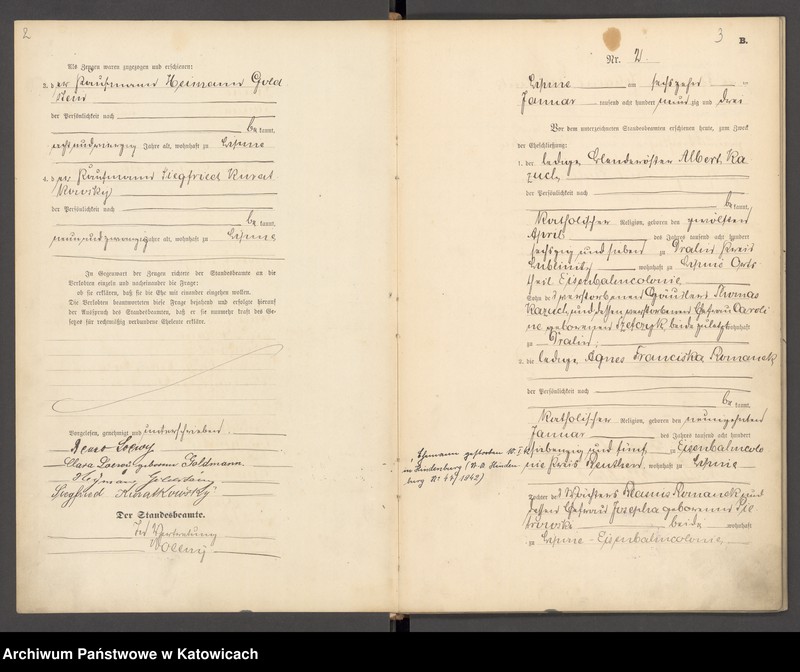 2
Als Zeugen waren zugezogen und erschienen:
3. der Kaufmann Heimann Gold
stein
der Persönlichkeit nach
be kannt,
acht und vierzig Jahre alt, wohnhaft zu Lipine
4. der Kaufmann Siegfried Kurat
kowsky
der Persönlichkeit nach
be kannt,
neun und zwanzig Jahre alt, wohnhaft zu Lipine
In Gegenwart der Zeugen richtete der Standesbeamte an die
Verlobten einzeln und nacheinander die Frage:
ob sie erklären, daß sie die Ehe mit einander eingehen wollen.
Die Verlobten beantworteten diese Frage bejahend und erfolgte hierauf
der Ausspruch des Standesbeamten, daß er sie nunmehr kraft des Ge-
setzes für rechtmäßig verbundene Eheleute erkläre.
Vorgelesen, genehmigt und unterschrieben
Loewy
Clara Loewy geborene Goldmann
Heymann Goldstein
Siegfried Kuratkowsky
Der Standesbeamte.
In Vertretung
3
B.
Nr. 2.
Lipine am sechszehn ten
Januar tausend acht hundert neun zig und drei
Vor dem unterzeichneten Standesbeamten erschienen heute, zum Zweck
der Eheschließung:
1. der ledige Albert Ka
zuch
der Persönlichkeit nach
be kannt,
katholischer Religion, geboren den zwölften
April des Jahres tausend acht hundert
sechszig und sieben zu Dralin Kreis
Lublinitz, wohnhaft zu Lipine Orts
theil Eisenbahncolonie
Sohn des verstorbenen Häuslers Thomas
Kazuch und dessen verstorbenen Ehefrau Caroli
ne geborenen beide zuletzt wohnhaft
zu Dralin
2. die ledige Agnes Franciska Romanek
der Persönlichkeit nach
be kannt,
katholischer Religion, geboren den neunzehnten
Januar des Jahres tausend acht hundert
siebenzig und fünf zu Eisenbahncolo
nie Kreis Beuthen, wohnhaft zu Lipine
Tochter des Blasius Romanek und
dessen Ehefrau Josepha geborenen Pie
trowska beide wohnhaft
zu Lipine - Eisenbahncolonie
Ehemann gestorben
in Hindenburg (St. A. Hinden
burg Nr 43/1942)
Archiwum Państwowe w Katowicach